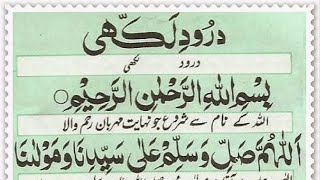 درودِ لکھی
درود لکھی
بِسْمِ اللهِ الرَّحْمٰنِ الرَّحِيْمِ
اللہ کے نام سے شروع جو نہایت مہربان رحم والا
اَللّٰهُمَّ صَلِّ وَسَلِّمْ عَلٰى سَيِّدِنَا وَمَوْلٰنَا